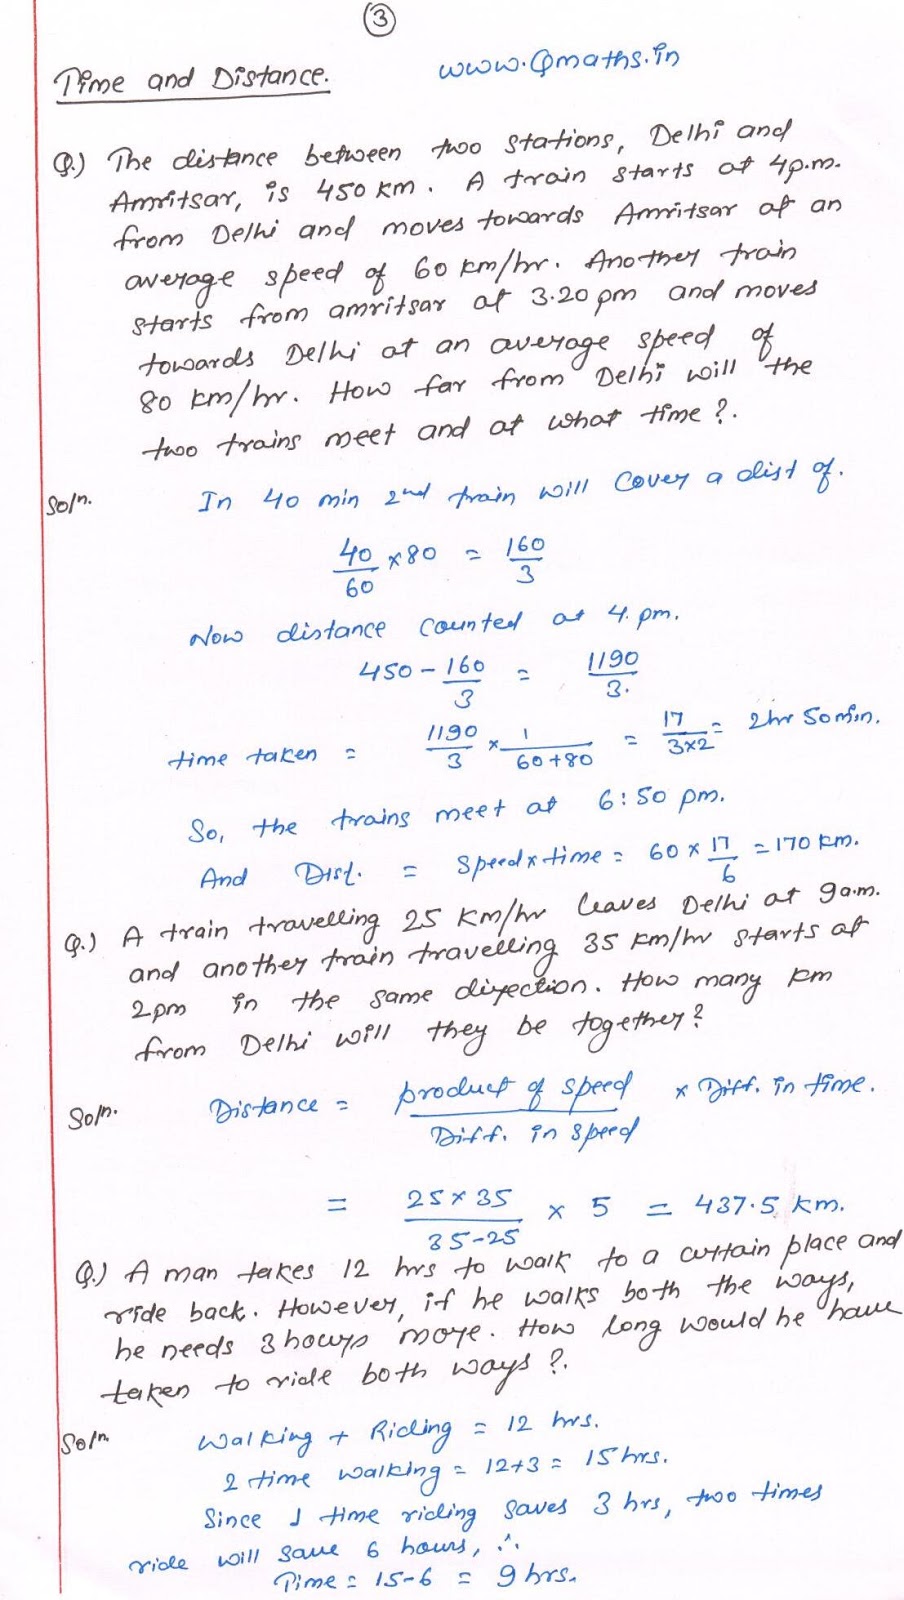 3
Time and Distance. www.Qmaths.in
Q.) The distance between two stations, Delhi and
Amritsar, is 450 km. A train starts at 4p.m.
from Delhi and moves towards Amritsar at an
average speed of 60 km/hr. Another train
starts from amritsar at 3.20 pm and moves
towards Delhi at an average speed of
80 km/hr. How far from Delhi will the
two trains meet and at what time?.
Soln. In 40 min 2nd train will cover a dist of.
40/60 × 80 = 160/3
Now distance counted at 4. pm.
450 - 160/3 = 1190/3.
time taken = 1190/3 × 1/60+80 = 17/3×2 = 2hr 50min.
So, the trains meet at 6:50 pm.
And Dist. = Speed × time = 60 × 17/6 = 170 km.
Q.) A train travelling 25 km/hr leaves Delhi at 9a.m.
and another train travelling 35 km/hr starts at
2pm in the same direction. How many km
from Delhi will they be together?
Soln. Distance = product of speed/Diff. in speed × Diff. in time.
= 25×35/35-25 × 5 = 437.5 km.
Q.) A man takes 12 hrs to walk to a certain place and
ride back. However, if he walks both the ways,
he needs 3 hours more. How long would he have
taken to ride both ways?.
Soln. Walking + Riding = 12 hrs.
2 time walking = 12+3 = 15 hrs.
Since 1 time riding saves 3 hrs, two times
ride will save 6 hours, ∴
Time = 15-6 = 9 hrs.